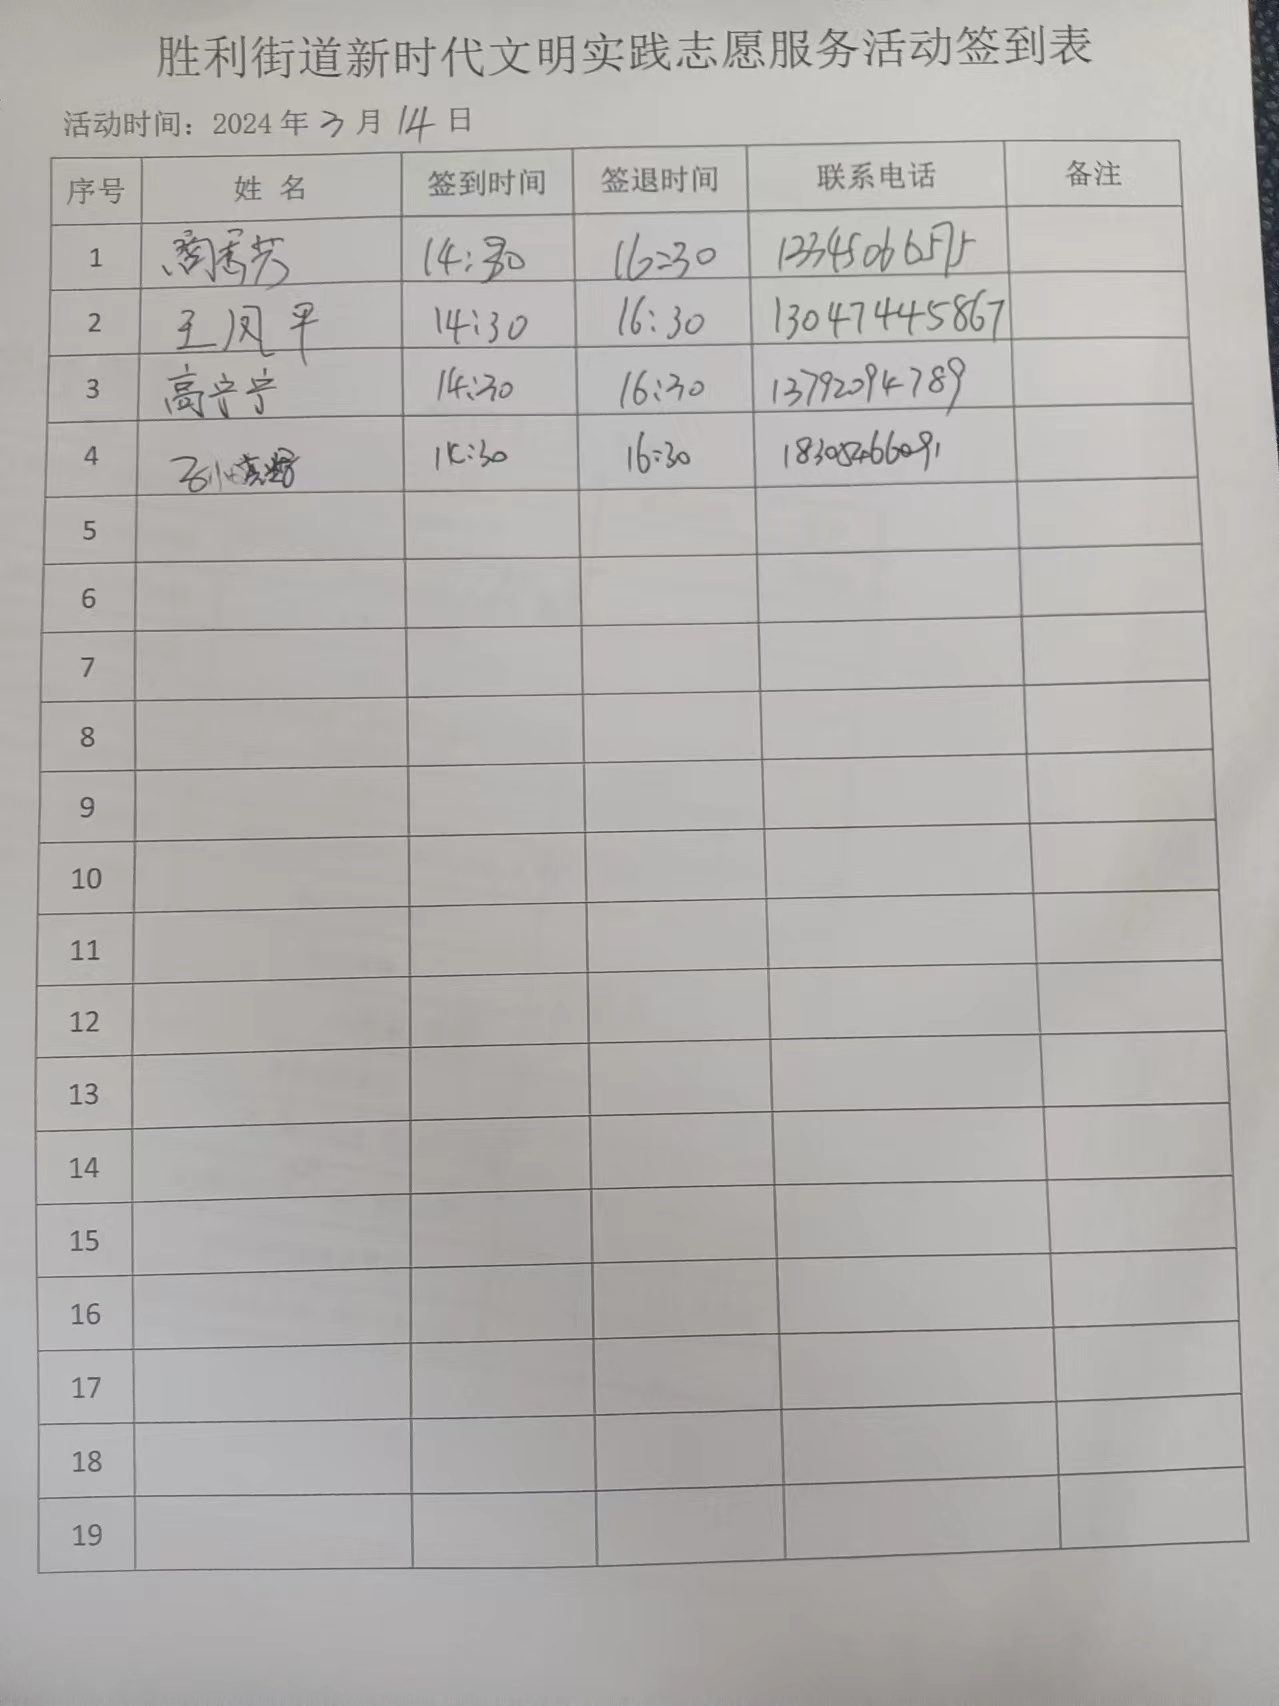 胜利街道新时代文明实践志愿服务活动签到表
活动时间：2024年3月14日
序号 姓 名 签到时间 签退时间 联系电话 备注
1 14:30 16:30
2 王凤平 14:30 16:30 13047445867
3 高宁宁 14:30 16:30 13792094789
4 14:30 16:30
5
6
7
8
9
10
11
12
13
14
15
16
17
18
19